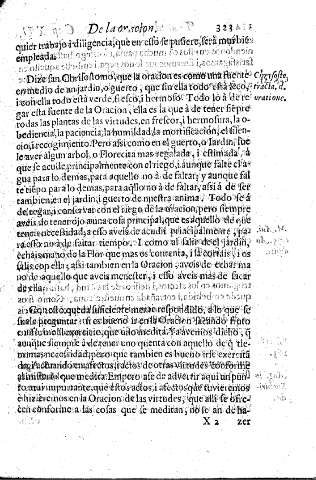 De la oracion. 323
quier trabajo i diligencia, que en esso se pusiere, será mui bien
empleada.
Dize san Chrisostomo, que la oracion es como una fuente
en medio de un jardin, o guerto, que sin ella todo està seco,
i con ella todo està verde, fresco, i hermoso. Todo lo à de re
gar esta fuente de la Oracion, ella es la que à de tener siépre
todas las plantas de las virtudes, en frescor, i hermosura, la o-
bediencia, la paciencia, la humildad, la mortificacion, el silen-
cio, i recogimiento. Pero assi como en el guerto, o Jardin, sue
le aver algun arbol, o Florecita mas regalada, i estimada, à
que se acude principalmente con el riego, i aunque falte el a-
gua para lo demas, para aquello no à de faltar; y aunque fal
te tiépo para lo demas, para aqllo nò à de faltar, assi à de ser
tambien en el jardin, i guerto de nuestra anima. Todo se à
de regar, i conservar con el riego de la oracion, pero siempre
aveis de tener ojo a una cosa principal, que es aquello de que
teneis necessidad, a esso aveis de acudir principalmente, pa-
ra esso no à de faltar tiempo. I como al salir del jardin,
echais mano de la Flor que mas os contenta, i la cortais, i os
salis con ella; assi tambien en la Oracion, aveis de echar ma
no de aquello que aveis menester, i esso aveis de sacar
de ella.
Con esto queda suficientemente respondido, a lo que se
suele preguntar si es bueno ir en la Oracion sacando fruto
conforme al exercicio, que uno medita. Ya avemos dicho, q
aunque siempre à de tener uno quenta con aquello de q tie-
ne mas necessidad, pero que tambien es bueno irse exercitá
do, i actuando en afectos, i actos de otras virtudes conforme
al misterio que medita. Empero ase de advertir aqui un pun-
to mui importante, que estos actos, i afectos que tuvieremos
è hizieremos en la Oracion de las virtudes, que alli se ofre-
cen conforme a las cosas que se meditan, no se an de ha-
X 2 zer